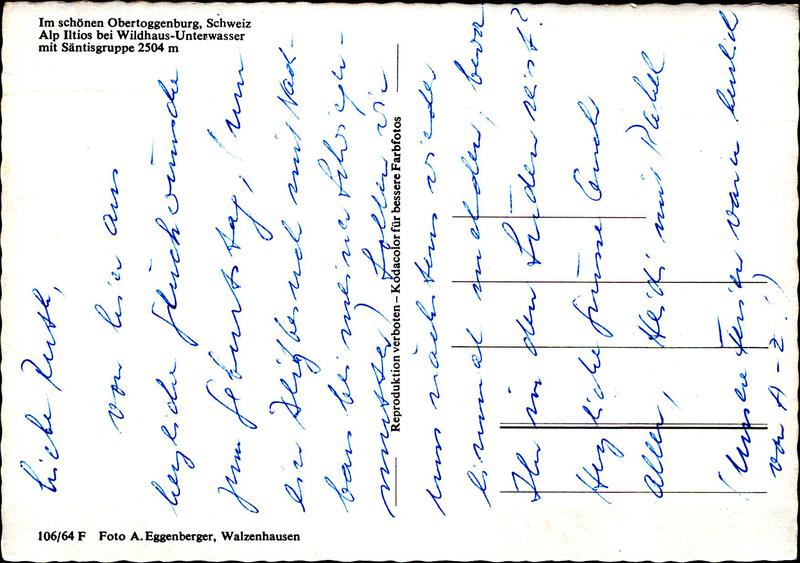 Im schönen Obertoggenburg, Schweiz
Alp Iltios bei Wildhaus-Unterwasser
mit Säntisgruppe 2504 m
Liebe Ruth,
von hier aus
herzliche Glückwünsche
zum Geburtstag, (nun
ein
bans bei meiner Schwieger-
mutter) Sollen wir
uns nächstens wieder
einmal melden, bevor
Ihr in den Süden reist?
Herzliche Grüsse Euch
allen, Heidi mit
(Unsere Ferien waren herrlich
von A-Z!)
Reproduktion verboten – Kodacolor für bessere Farbfotos
106/64 F Foto A. Eggenberger, Walzenhausen